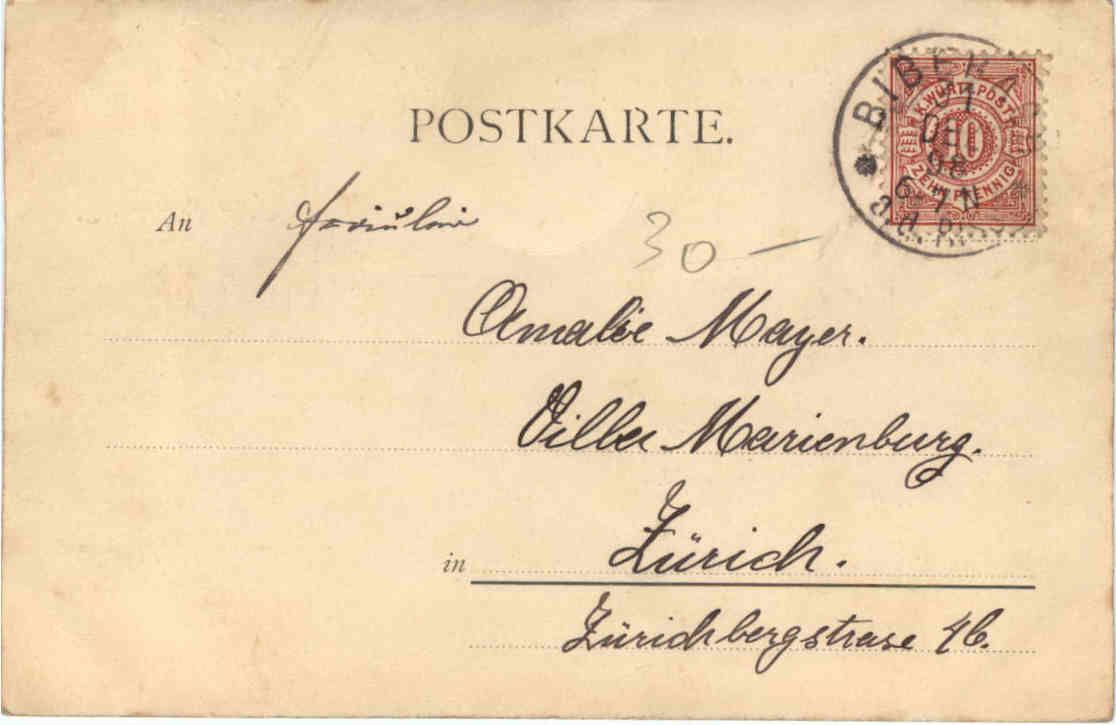 POSTKARTE.
K. WÜRTT. POST
10
ZEHN PFENNIG
BIBERA
01
DE
98
6-7N
a.d.
An Fräulein
30 —
Amalie Mayer.
Villa Marienburg.
in Zürich.
Zürichbergstrase 46.